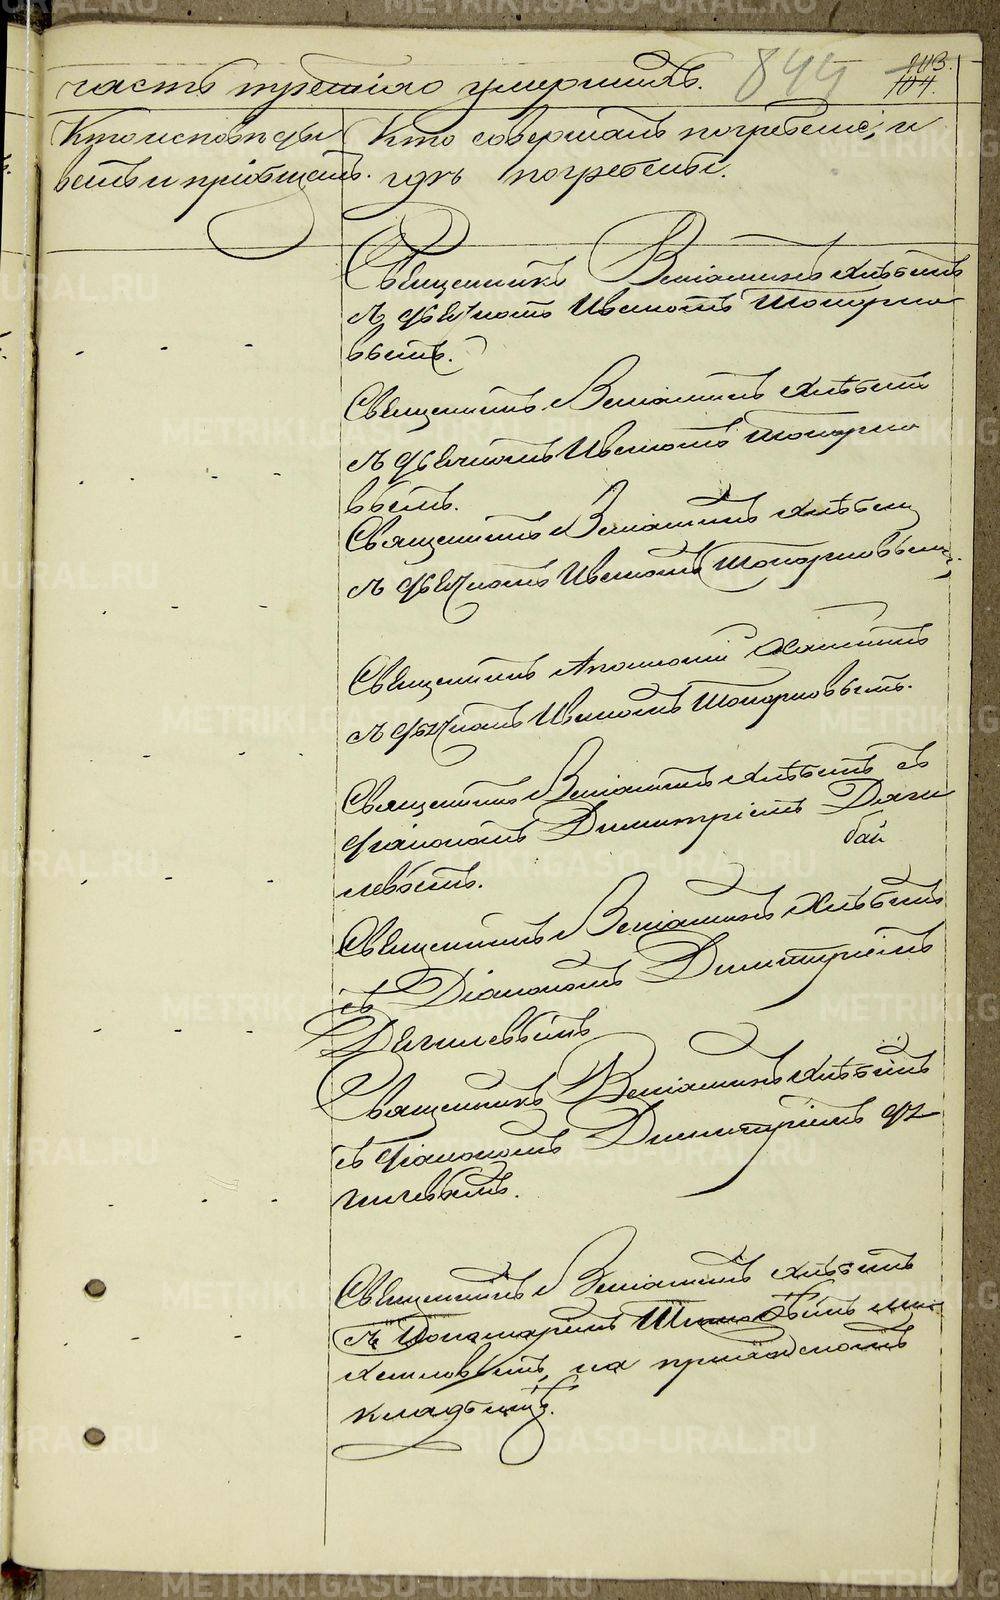 часть третiяго умершихъ.
844
103.
104.
Кто исповѣды
валъ и прiобщалъ.
Кто совершалъ погребенiе, и
гдѣ погребены.
Священникъ Венiаминъ Хлѣбинъ
съ дьячкомъ Иваномъ Топорко
вымъ.
Священникъ Венiаминъ Хлѣбинъ
съ дьячкомъ Иваномъ Топорко
вымъ.
Священникъ Венiаминъ Хлѣбинъ
съ дьячкомъ Иваномъ Топорковымъ.
Священникъ
съ дьячкомъ Иваномъ Топорковымъ.
Священникъ Венiаминъ Хлѣбинъ съ
дiакономъ Димитрiемъ
Священникъ Венiаминъ Хлѣбинъ
съ Дiакономъ Димитрiемъ
Священникъ Венiаминъ Хлѣбинъ
съ дiакономъ Димитрiемъ
Священникъ Венiаминъ Хлѣбинъ
съ Пономаремъ
на приходскомъ
кладбищѣ.
METRIKI.GASO-URAL.RU